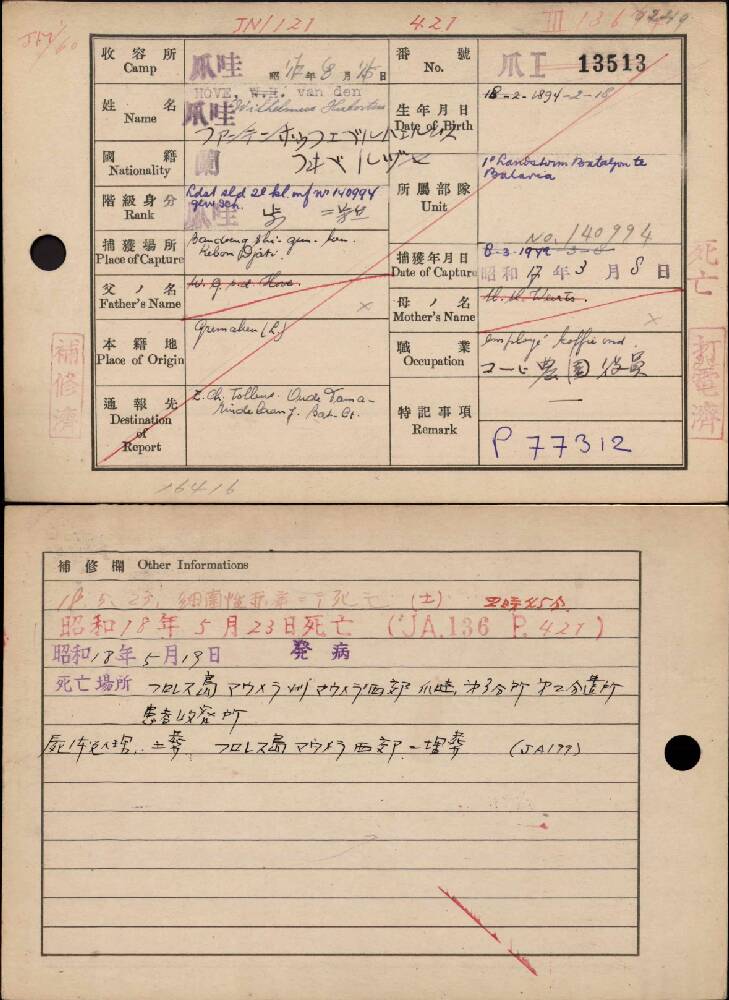 JN/121 421
收容所 Camp 爪哇 昭 17年 8月 15日
番號 No. 爪I 13513
姓名 Name HOVE, W.H. van den
爪哇 Wilhelmus Hubertus
ファンデンホッフエ ヴルヘルムス
フオベルヅス
生年月日 Date of Birth 18-2-1894-2-18
國籍 Nationality 蘭
階級身分 Rank Ldst sld 2e kl. inf no 140994
爪哇 二等
所屬部隊 Unit 1e Landstorm Bataljon te
Batavia
No. 140994
捕獲場所 Place of Capture Bandoeng
Kebon Djati
捕獲年月日 Date of Capture 8-3-1942
昭和 17年 3月 8日
父ノ名 Father's Name
母ノ名 Mother's Name
本籍地 Place of Origin (L.)
職業 Occupation employé koffie ond.
コーヒ農園役員
通報先 Destination of Report Z. Ch. Tollens. Oude Tama-
rindelaan 7. Bat. C.
特記事項 Remark 一
P 77312
補修濟
死亡
打電濟
16416
補修欄 Other Informations
18.5.23. 細菌性赤 死亡 (土)
昭和18年5月23日死亡 (JA.136 P.421)
昭和18年5月19日 発病
死亡場所 フロレス島マウメラ州マウメラ西部 爪哇 第3分所 第二分遣所
患者收容所
屍体処理、土葬 フロレス島マウメラ西部ニ埋葬 (JA199)